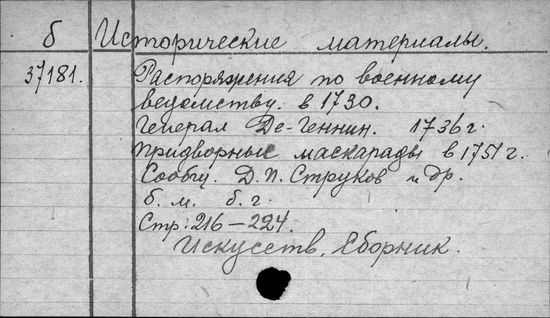 б Исторические материалы.
37181. Распоряжения по военному
ведомству. в 1730.
Генерал Де-Геннин. 1736 г.
Придворные маскарады в 1751 г.
Сообщ. Д.П. Струков и др.
б. м. б. г.
Стр: 216-224.
Искусств. Сборник.